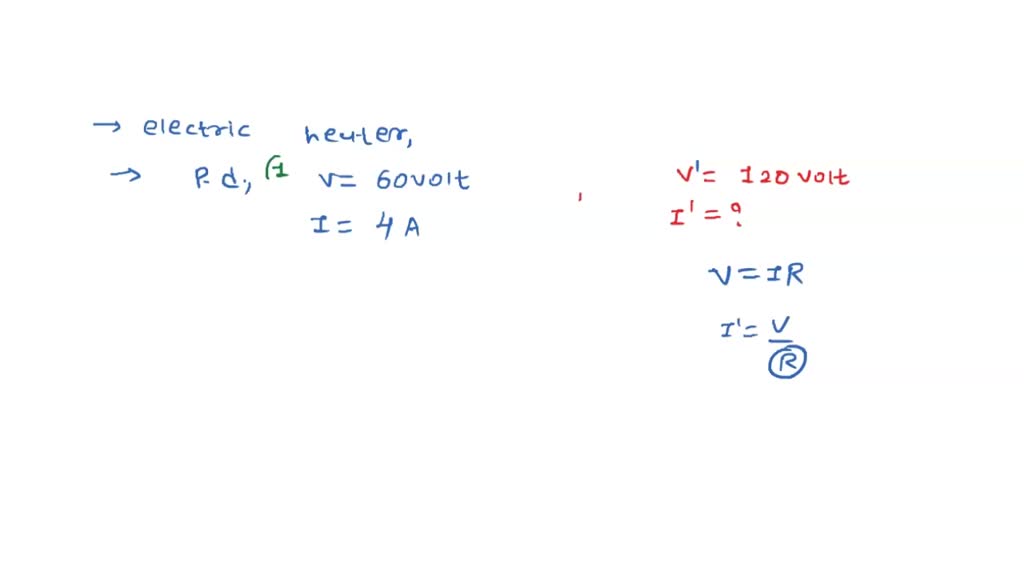 → electric heater,
→ P.d., (1 V = 60 volt
I = 4 A
V' = 120 volt
I' = ?
V = IR
I' = V/R